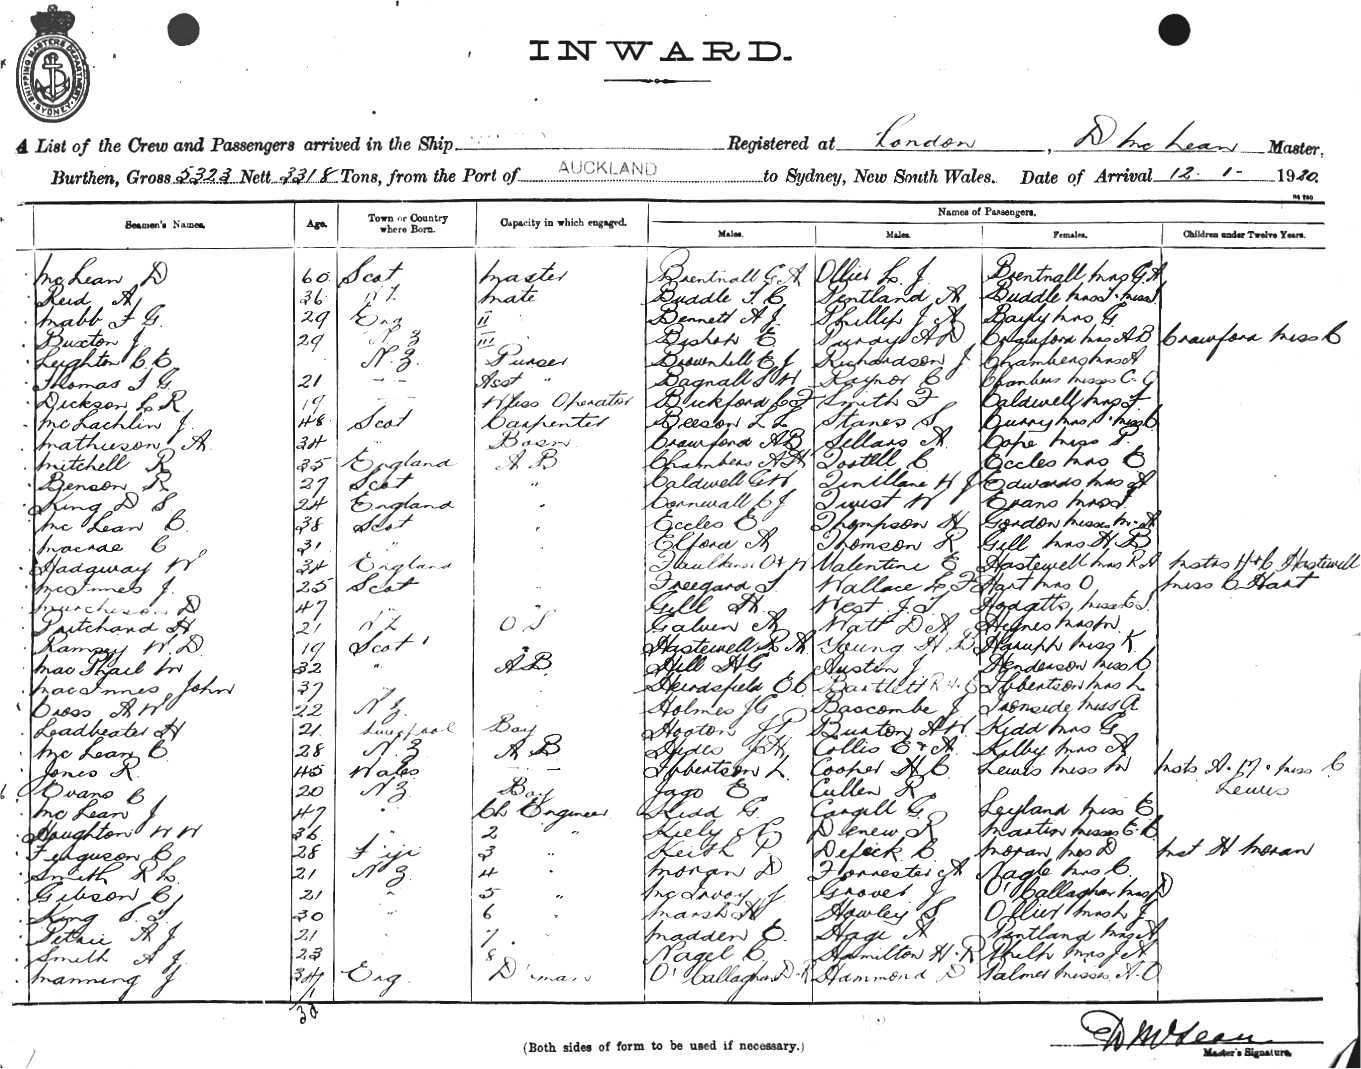 SHIPPING MASTERS DEPARTMENT SYDNEY
INWARD.
A List of the Crew and Passengers arrived in the Ship Registered at London, D McLean Master,
Burthen, Gross 5323 Nett 3318 Tons, from the Port of AUCKLAND to Sydney, New South Wales. Date of Arrival 12-1-1920.
Names of Passengers.
Seamen's Names. Age. Town or Country where Born. Capacity in which engaged. Males. Males. Females. Children under Twelve Years.
McLean D 60 Scot Master Brentnall G A Ollier L J Brentnall Mrs G A
Reid A 36 Mate Buddle T C Pentland A Buddle Mrs T Miss
Mabb F G 29 Eng II Bennett A J Phillip J A Bayly Mrs G
Buxton J 29 N Z III Bishop E Purdy A D Crawford Mrs A B Crawford Miss C
Leighton C E N.Z. Purser Brownhill E J Richardson J Chambers Mrs A
Thomas T G 21 Asst " Bagnall Raynor C Chambers Misses C. G
Dickson L R 19 W'less Operator Bickford C F Smith F Caldwell Mrs F
McLachlin J. 48 Scot Carpenter Beeson L L Stanes S
Mathieson A. 34 " Bosn Crawford A B Sellars A Cope Miss
Mitchell R 35 England A B Chambers A H Tostell C Eccles Mrs E
Benson R 27 Scot " Caldwell G W Edwards Mrs A
King D S 24 England " Cornwall C J Twist W Evans Mrs
McLean C. 38 Scot " Eccles E Thompson H Gordon Misses M. A
Macrae C 31 " Elford A Thomson R Gill Mrs H B
Hadgway W 34 England Faulkner O W Valentine E Hastewell Mrs R A Mstrs H & C Hastewell
McInnes J. 25 Scot Freegard Wallace L F Hart Mrs O Miss C Hart
Murcheson D 47 " Gill H. West J. T.
Pritchard H 21 N Z O S Galvin A Watt D A Heynes Mrs M.
Ramsey W. D 19 Scot Hastewell R A Young H Miss K
MacPhail M 32 " A B Hill H G Austin J Henderson Miss
MacInnes John 37 E C Bartlett R Ibbertson Mrs L
Cross A W 22 N.Z. Holmes J G Bascombe J Ironside Miss A
Leadbeater H 21 Liverpool Boy Hooton J P Buxton A W. Kidd Mrs G
McLean C 28 N.Z A B Collis E & A. Kilby Mrs A
Jones R 45 Wales Ibbertson L. Cooper H C Lewis Miss M Mstrs Miss C Lewis
Evans C 20 N Z Boy Jago E Cullen R
McLean J 47 " Ch Engineer Kidd G. Cargill G. Leyland Miss E
Houghton W W 36 " 2 " Kiely Denew R Martin Misses E. C
Ferguson C. 28 Fiji 3 " Keith P Defock C Moran Mrs D Mst H Moran
Smith R L 21 N Z 4 " Moran D Forrester A Nagle Mrs C.
Gibson C 21 " 5 " McIvoy J Grover J O'Callaghan Mrs D
King 30 " 6 " Marsh H Howley S Ollier Mrs L J
Petrie A J 21 " 7 . Madden E. Hagi A Pentland Mrs A
Smith A J. 23 8 " Nagel C. Hamilton H. R Mrs J A
Manning J 34 Eng. D'man O'Callaghan D. R Hammond D Palmer Misses A. O
(Both sides of form to be used if necessary.)
D McLean
Master's Signature.